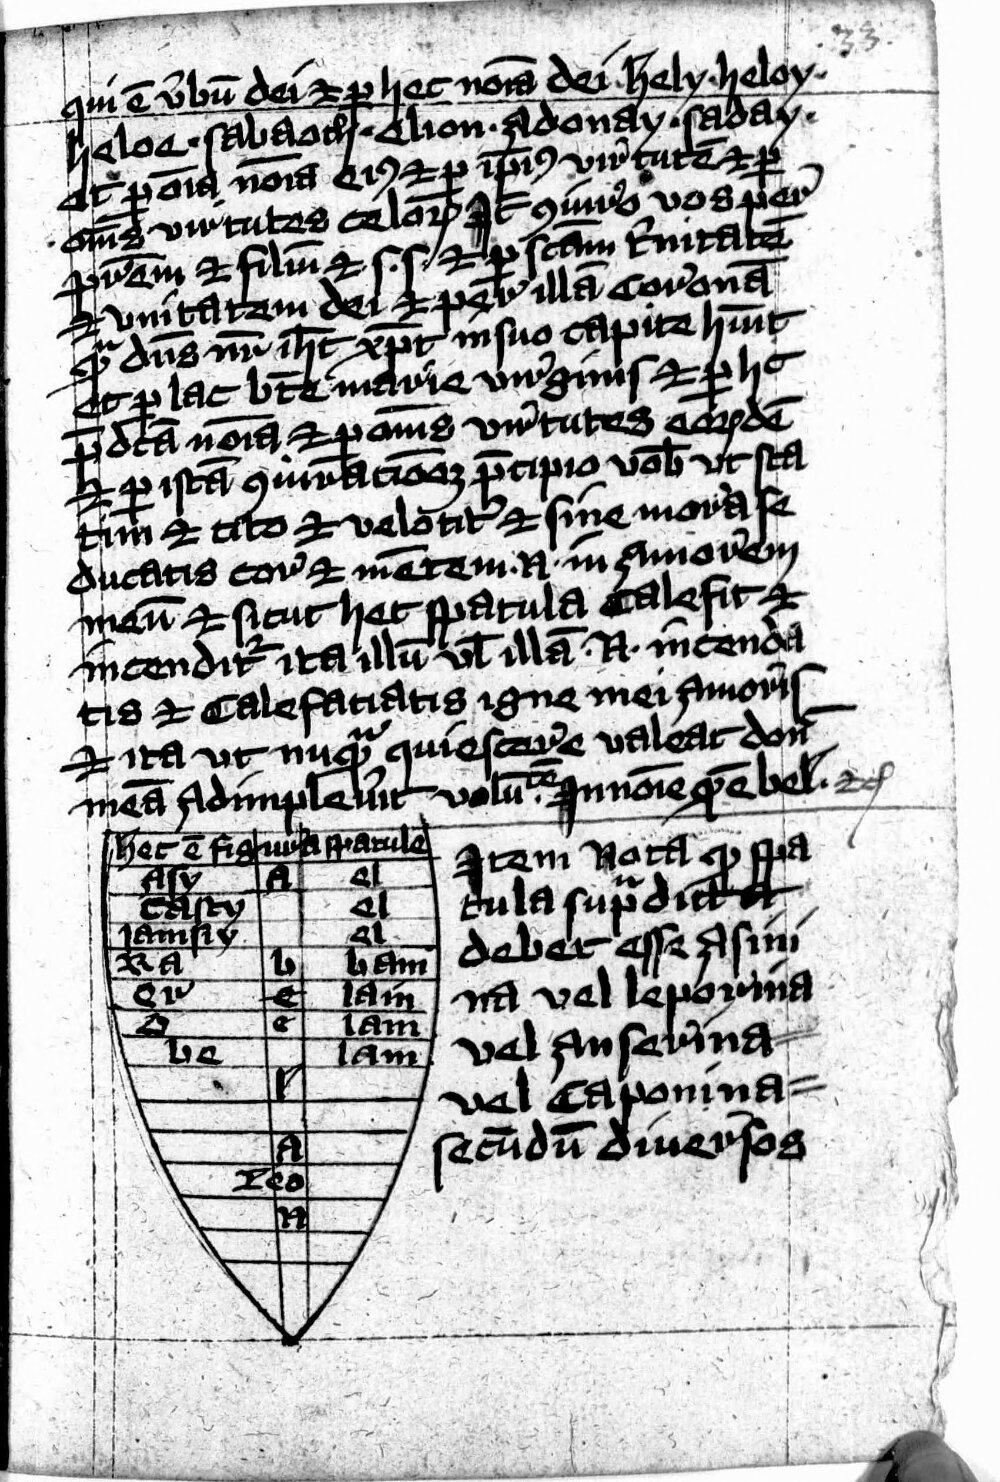 33.
qui ē v̄bū dei ⁊ ꝑ hec noīa dei. hely. heloy.
heloe. sabaoth. elion. Adonay. saday.
et ꝑ oīa noīa eiꝰ ⁊ ꝑ ip̄iꝰ virtutē ⁊ ꝑ
om̄s virtutes celoꝝ Itē ꝯiuro vos per
pr̄em ⁊ filiū ⁊ s. s. ⁊ ꝑ scām t̄nitatē
⁊ vnitatem dei ⁊ per illā coronā
qͣ dn̄s nr̄ ih̄c xp̄c in suo capite h̄uit
et ꝑ lac bt̄e marie virginis ⁊ ꝑ hec
p̄dcā noīa ⁊ ꝑ om̄s virtutes eoꝝdē
⁊ ꝑ istā ꝯiurationē p̄cipio vob̄ vt sta
tim ⁊ cito ⁊ velocit̄ ⁊ sine mora se
ducatis cor ⁊ mētem. N. in Amorem
meū ⁊ sicut hec spatula Calefit ⁊
incendit̄ ita illū vl̄ illā. N. incenda
tis ⁊ Calefatiatis igne mei Amoris
⁊ ita vt nūqͣ quiescere valeat don̄
meā Adimpleverit volū.tē In noīe qͥ ē bel. ⁊c
hec ē figura spatule
Asy A el
Casty el
Iamsiy el
Ra b bam
er e lam
o e lam
be lam
r
A
Leo
N
Item Nota ꝙ spa
tula supͣdicta
debet esse Asini
na vel leporina
vel Anserina
vel Caponina
secūdū diversos